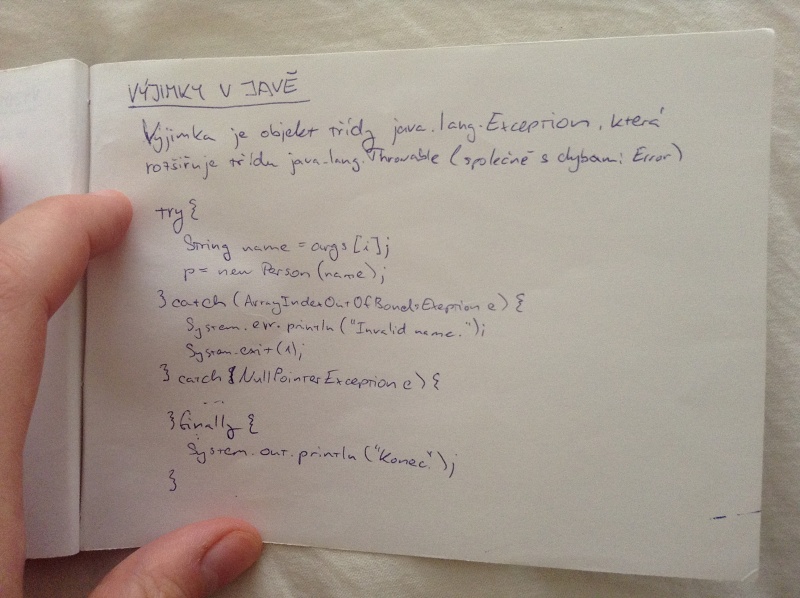 VÝJIMKY V JAVĚ
Výjimka je objekt třídy java.lang.Exception, která
rozšiřuje třídu java.lang.Throwable (společně s chybami Error)
try {
String name = args [i];
p = new Person (name);
} catch (ArrayIndexOutOfBoundsExeption e) {
System.err.println ("Invalid name.");
System.exit (1);
} catch (NullPointerException e) {
...
} finally {
System.out.println ("Konec.");
}